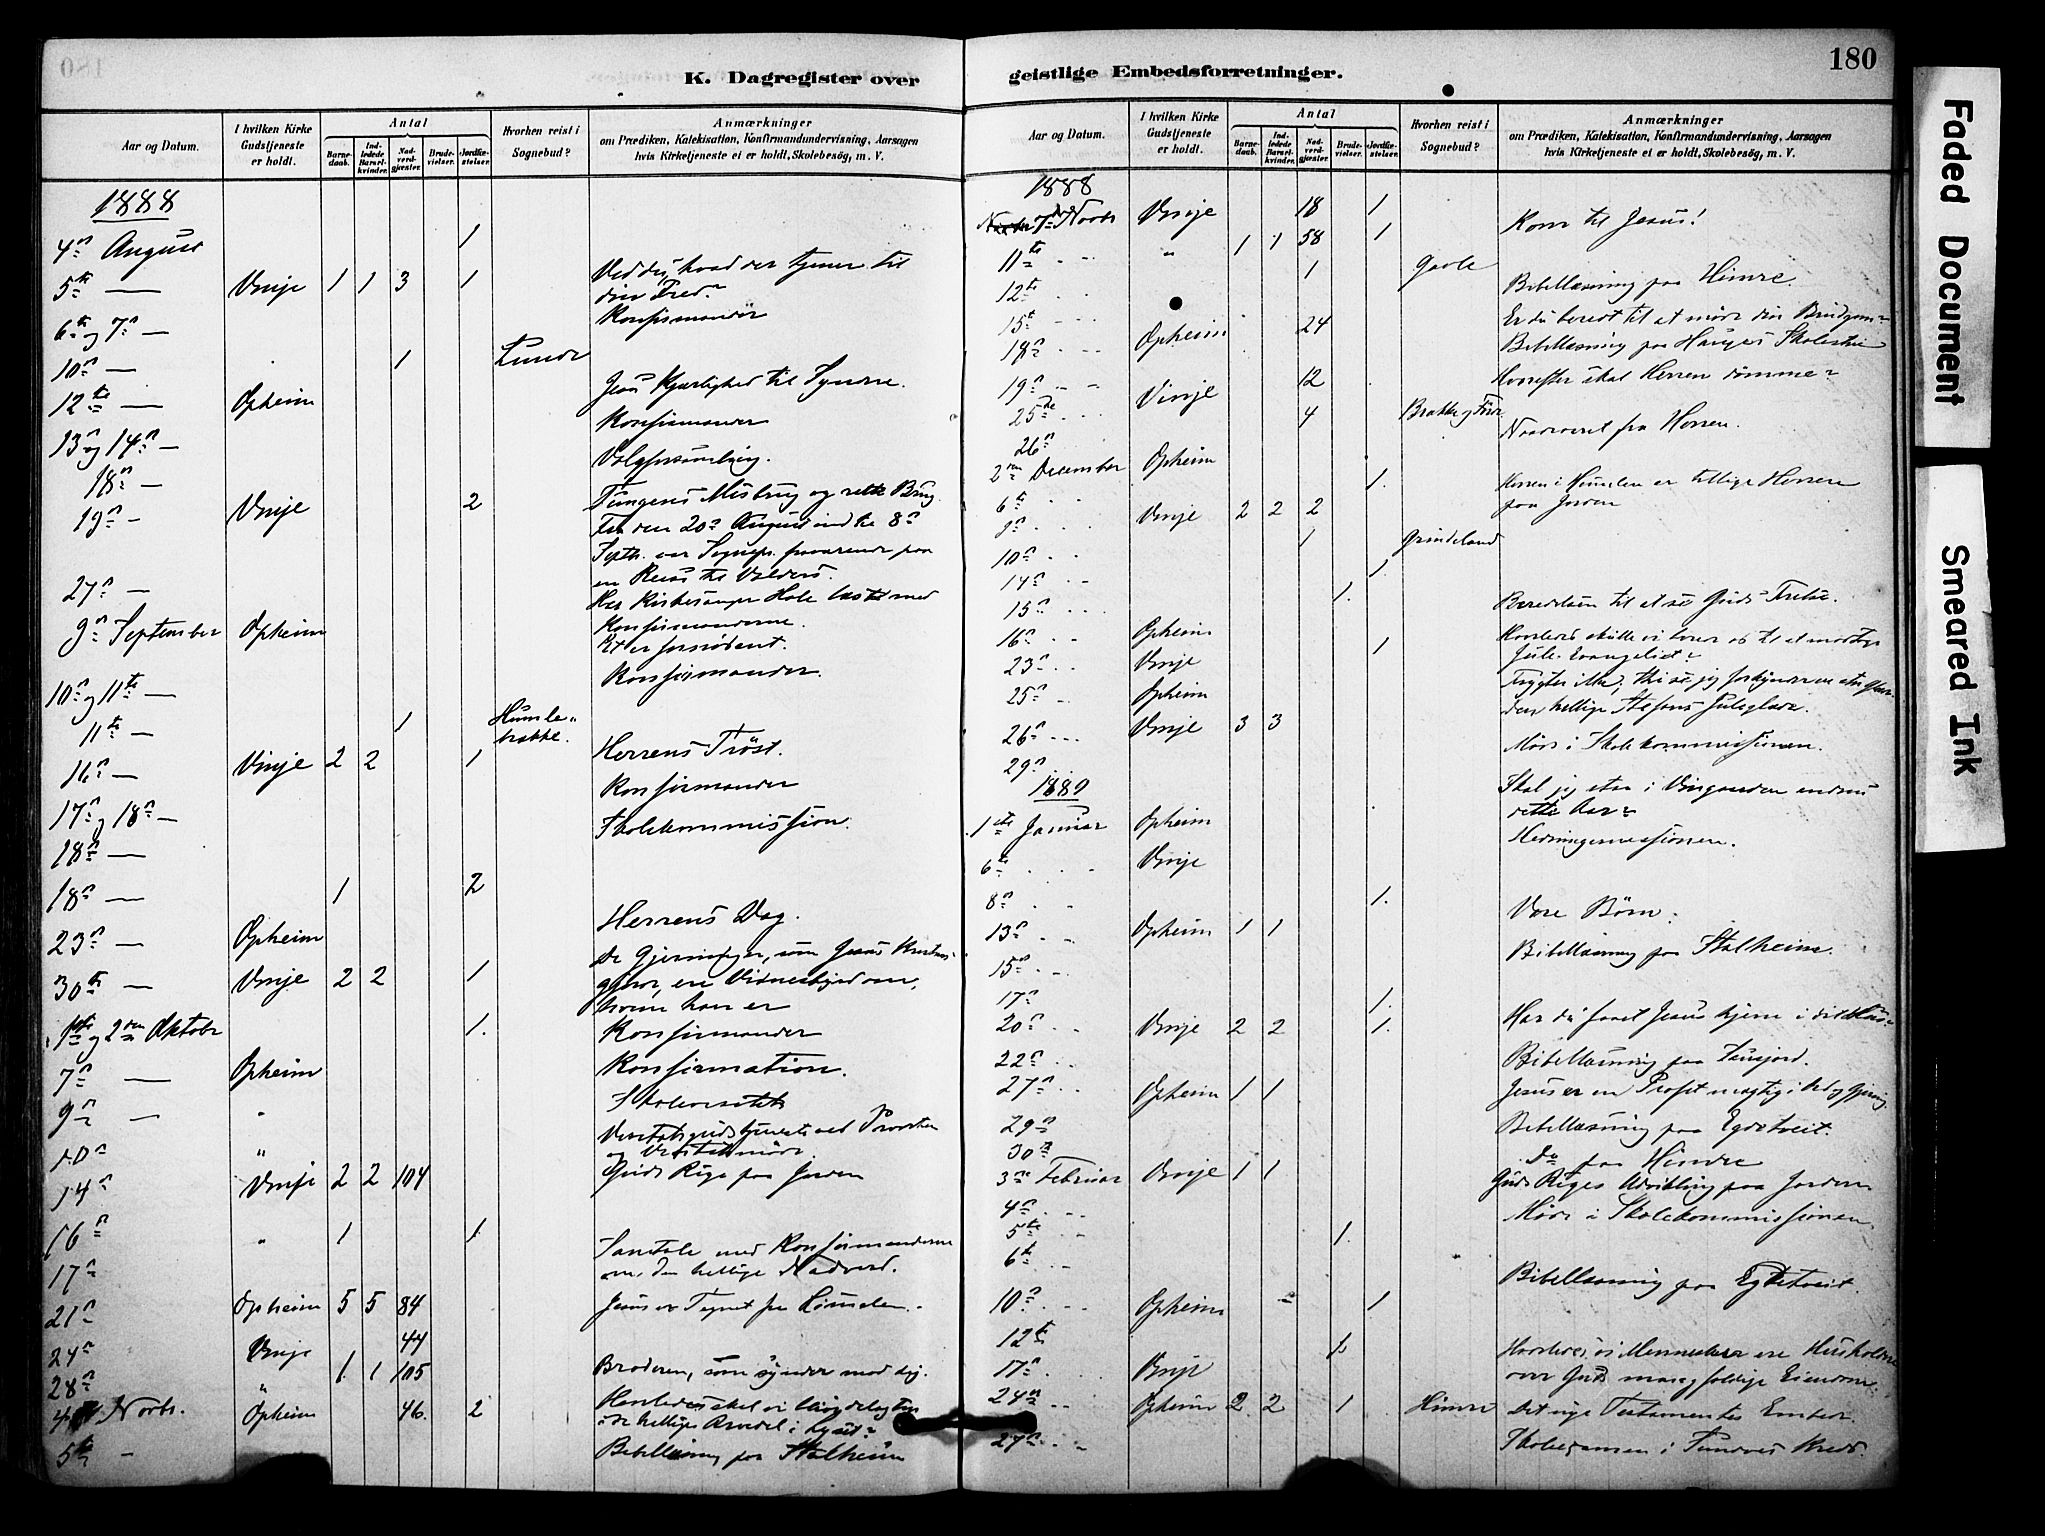 180
K. Dagregister over
geistlige Embedsforretninger.
Aar og Datum.
I hvilken Kirke Gudstjeneste er holdt.
Antal
Barnedaab.
Indledede Barselkvinder.
Nadverdgjæster.
Brudevielser.
Jordfæstelser.
Hvorhen reist i Sognebud?
Anmærkninger
om Prædiken, Katekisation, Konfirmandundervisning, Aarsagen
hvis Kirketjeneste ei er holdt, Skolebesög, m. V.
1888
4de August 1
5te — Vinje 1 1 3 1 Ved du, hvad der tjener til
din Fred?
6te og 7de — Konfirmander
10de — 1 Lunde
12te — Opheim Jesu Kjærlighed til Syndere.
13de og 14de — Konfirmander
18de — Valgforsamling.
19de — Vinje 2 Tungens Misbrug og rette Brug.
Fra den 20de August ind til 8de
Septb. var Sognepr. fraværende paa
en Reise til Valders.
27de — Har Kirkesanger Hole læst med
Konfirmanderne.
9de September Opheim Et er fornødent.
10de og 11te — Konfirmander.
11te — 1 Humle-
brække.
16de — Vinje 2 2 1 Herrens Trøst.
17de og 18de — Konfirmander
18de — Skolekommission.
18de — 1 2
23de — Opheim Herrens Dag.
30te — Vinje 2 2 1 De Gjerninger, som Jesus Kristus
gjør, ere Vidnesbyrd om,
hvem han er
1ste og 2den Oktobr 1. Konfirmander
7de — Opheim Konfirmation.
9de — "
10de "
og Visitatsmøde.
14de Vinje 2 2 104 Guds Rige paa Jorden
16de " 1 1.
17de Samtale med Konfirmanderne
om den hellige Nadverd.
21de Opheim 5 5 84 Jesus er Tegnet fra Himlen.
24de Vinje 44
28de " 1 1 105 Broderen, som synder mod dig.
4de Novbr. Opheim 46. 2 Hvorledes skal vi blive delagtige
i de hellige Arvedel i Lyset?
5te - Bibellæsning paa Stalheim
Aar og Datum.
I hvilken Kirke Gudstjeneste er holdt.
Antal
Barnedaab.
Indledede Barselkvinder.
Nadverdgjæster.
Brudevielser.
Jordfæstelser.
Hvorhen reist i Sognebud?
Anmærkninger
om Prædiken, Katekisation, Konfirmandundervisning, Aarsagen
hvis Kirketjeneste ei er holdt, Skolebesög, m. V.
1888
7de Novbr Vinje 18 1
11te " 1 1 58 1 Kom til Jesus!
12te 1 Gavle
15te Bibellæsning paa Himre.
18de Opheim 24 Er du beredt til at møde din Brudgom?
19de Bibellæsning paa Hauges Skolestue
25de Vinje 12 Hvorefter skal Herren dømme?
26de 4 Brække og
2den December Opheim Nadveret fra Herren.
6te 1.
9de Vinje 2 2 2 Herren i Himlen er tillige Herren
paa Jorden
10de 1 Grindeland
14de 1.
15de 1.
16de Opheim Beredelsen til at se Guds Frelse.
23de Vinje 1 Hvorledes skulle vi
Jule-Evangeliet?
25de Opheim Frygter ikke; thi se jeg forkynder
26de Vinje 3 3 den hellige Stefans Juleglæde.
29de Møde i Skolekommissionen.
1889
1ste Januar Opheim Skal jeg staa i Vingaarden endnu
dette Aar?
6te Vinje Hedningemissionen.
8de 1.
13de Opheim 1 1 Vore Børn.
15de Bibellæsning paa Stalheim.
17de 1.
20de Vinje 2 2 1. Har du faaet Jesus hjem i dit Hus?
22de Bibellæsning paa
27de Opheim 1 1 Jesus er en Profet mægtig i Ord og Gjerning
29de Bibellæsning paa Egdetveit.
30te Do paa Himre
3de Februar Vinje 1 1 Guds Riges Udvikling paa Jorden.
4de Møde i Skolekommissionen.
5te 1.
6te Bibellæsning paa Egdetveit.
10de Opheim 1
12te 1
17de Vinje Hvorledes vi Mennesker ere Husholdere
over Guds mangfoldige Eiendom.
24de Opheim 2 2 1 Himre Det nye Testamentes Embede.
27de
Faded Document
Smeared Ink